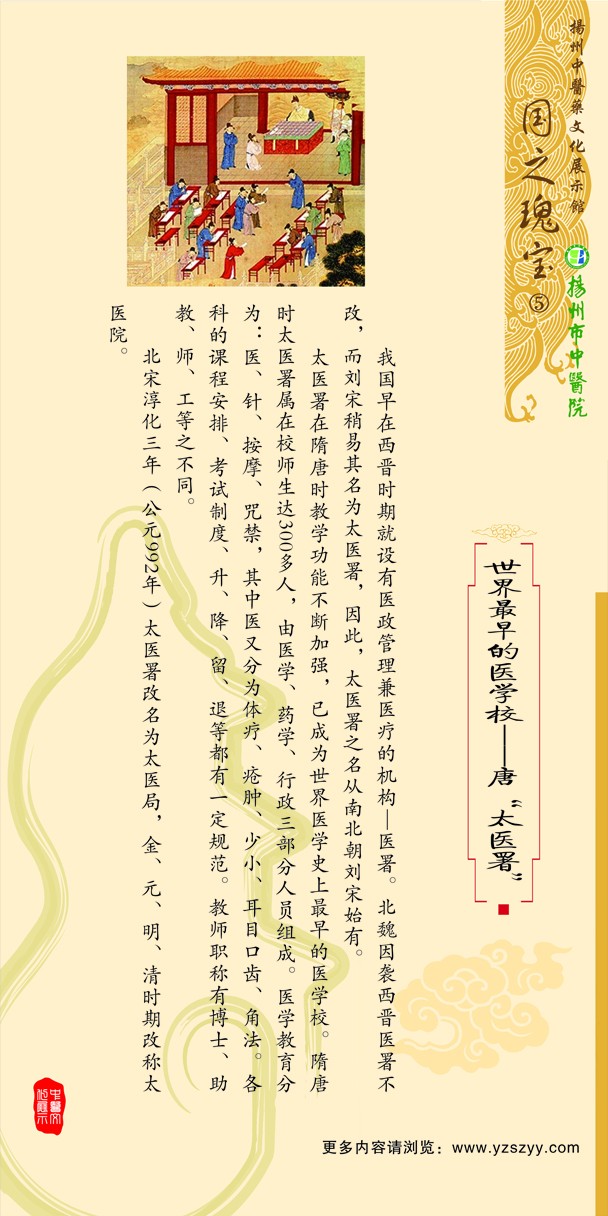 揚州中醫藥文化展示館
国之瑰宝⑤
揚州市中醫院
世界最早的医学校——唐“太医署”
我国早在西晋时期就设有医政管理兼医疗的机构—医署。北魏因袭西晋医署不
改，而刘宋稍易其名为太医署，因此，太医署之名从南北朝刘宋始有。
太医署在隋唐时教学功能不断加强，已成为世界医学史上最早的医学校。隋唐
时太医署属在校师生达300多人，由医学、药学、行政三部分人员组成。医学教育分
为：医、针、按摩、咒禁，其中医又分为体疗、疮肿、少小、耳目口齿、角法。各
科的课程安排、考试制度、升、降、留、退等都有一定规范。教师职称有博士、助
教、师、工等之不同。
北宋淳化三年（公元992年）太医署改名为太医局，金、元、明、清时期改称太
医院。
更多内容请浏览：www.yzszyy.com